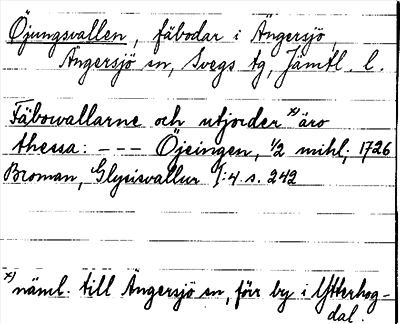 Öjungsvallen, fäbodar i Ängersjö,
Ängersjö sn, Svegs tg, Jämtl. l.
Fäbowallarne och utjorder x) äro
thessa: --- Öjeingen, 1/2 mihl; 1726
Broman, Glysisvallur I:4 s. 242
x) näml. till Ängersjö sn, förr by i Ytterhog-
dal.